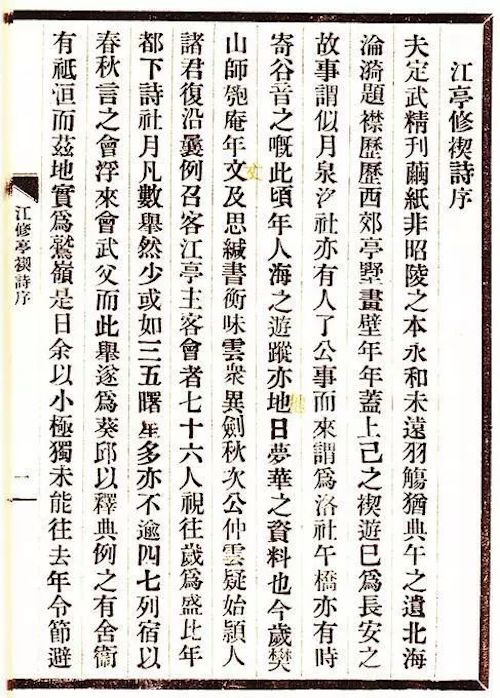 江亭修禊詩序
夫定武精刊繭紙非昭陵之本永和未遠羽觴猶典午之遺北海
淪漪題襟歷歷西郊亭墅畫壁年年蓋上己之禊遊巳爲長安之
故事謂似月泉汐社亦有人了公事而來謂爲洛社午橋亦有時
寄谷音之嘅此頃年人海之遊蹤亦地日夢華之資料也今歲樊
山師匏庵年文及思緘書衡味雲衆異劍秋次公仲雲疑始頴人
丈
諸君復沿曩例召客江亭主客會者七十六人視往歲爲盛比年
都下詩社月凡數舉然少或如三五曙星多亦不逾四七列宿以
春秋言之會浮來會武父而此舉遂爲葵邱以釋典例之有舍衞
有祗洹而茲地實爲鷲嶺是日余以小極獨未能往去年令節避
江修亭禊詩序
一